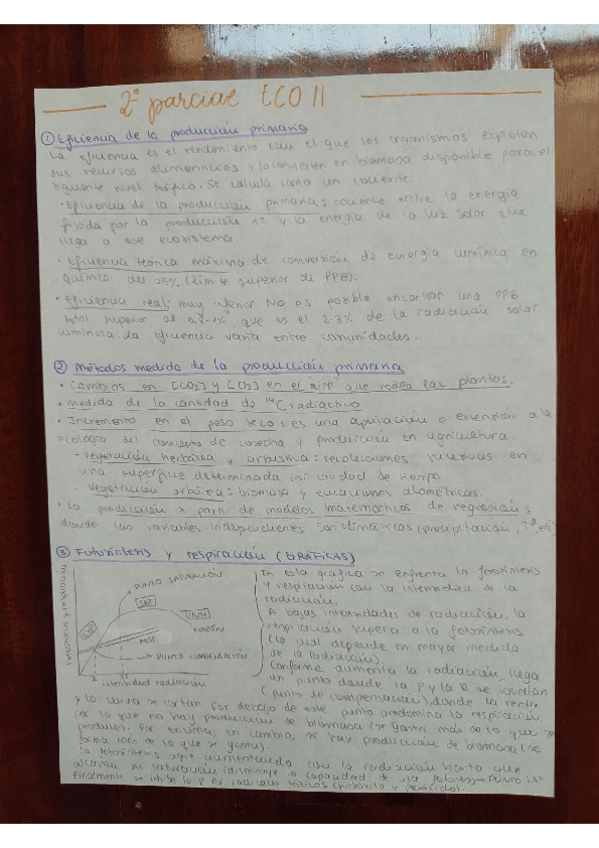 2º parcial ECO II
① Eficiencia de la producción primaria
La eficiencia es el rendimiento con el que los organismos explotan
sus recursos alimenticios y lo convierten en biomasa disponible para el
siguiente nivel trófico. Se calcula como un cociente.
· Eficiencia de la producción primaria: cociente entre la energía
fijada por la producción 1ª y la energía de la luz solar que
llega a ese ecosistema.
· Eficiencia teórica máxima de conversión de energía lumínica en
química del 25% (límite superior de PPB).
· Eficiencia real: muy inferior. No es posible encontrar una PPB
total superior al que es el 2-3% de la radiación solar
luminosa. La eficiencia varía entre comunidades.
② Métodos medida de la producción primaria
· Cambios en [CO2] y [O2] en el aire que rodea las plantas.
· Medida de la cantidad de ¹⁴C radiactivo
· Incremento en el peso seco: es una aplicación o extensión a la
ecología del concepto de cosecha y producción en agricultura.
- Vegetación herbácea y arbustiva: recolecciones sucesivas en
una superficie determinada por unidad de tiempo
- Vegetación arbórea: biomasa y ecuaciones alométricas.
· La predicción a partir de modelos matemáticos de regresión;
donde las variables independientes son climáticas (precipitación, Tª, etc)
③ Fotosíntesis y respiración (GRÁFICAS)
PUNTO SATURACIÓN
SAT
INH
RESP
PUNTO COMPENSACIÓN
intensidad radiación
En esta gráfica se enfrenta la fotosíntesis
y respiración con la intensidad de la
radiación.
A bajas intensidades de radiación, la
respiración supera a la fotosíntesis
(la cual depende en mayor medida
de la radiación).
Conforme aumenta la radiación, llega
un punto donde la P y la R se igualan
(punto de compensación), donde la recta
y la curva se cortan. Por debajo de este punto predomina la respiración,
por lo que no hay producción de biomasa (se gasta más de lo que se
produce). Por encima, en cambio, sí hay producción de biomasa (se
forma más de lo que se gasta).
La fotosíntesis sigue aumentando con la radiación hasta que
alcanza su saturación (disminuye la capacidad de usa
Finalmente se inhibe la P